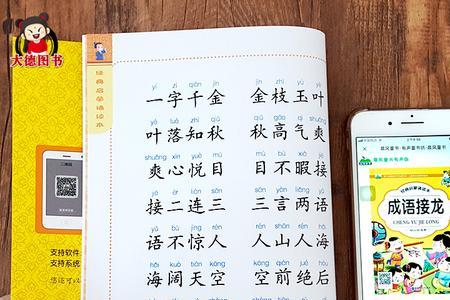 大德图书
二维码
支持软件
支持系统
您还可以
经典启蒙诵读本
yí zì qiān jīn jīn zhī yù yè
一字千金 金枝玉叶
yè luò zhī qiū qiū gāo qì shuǎng
叶落知秋 秋高气爽
shuǎng xīn yuè mù mù bù xiá jiē
爽心悦目 目不暇接
jiē èr lián sān sān yán liǎng yǔ
接二连三 三言两语
yǔ bù jīng rén rén shān rén hǎi
语不惊人 人山人海
hǎi kuò tiān kōng kōng qián jué hòu
海阔天空 空前绝后
晨风童书
晨风童书·有声版
成语接龙
CHENG YU JIE LONG